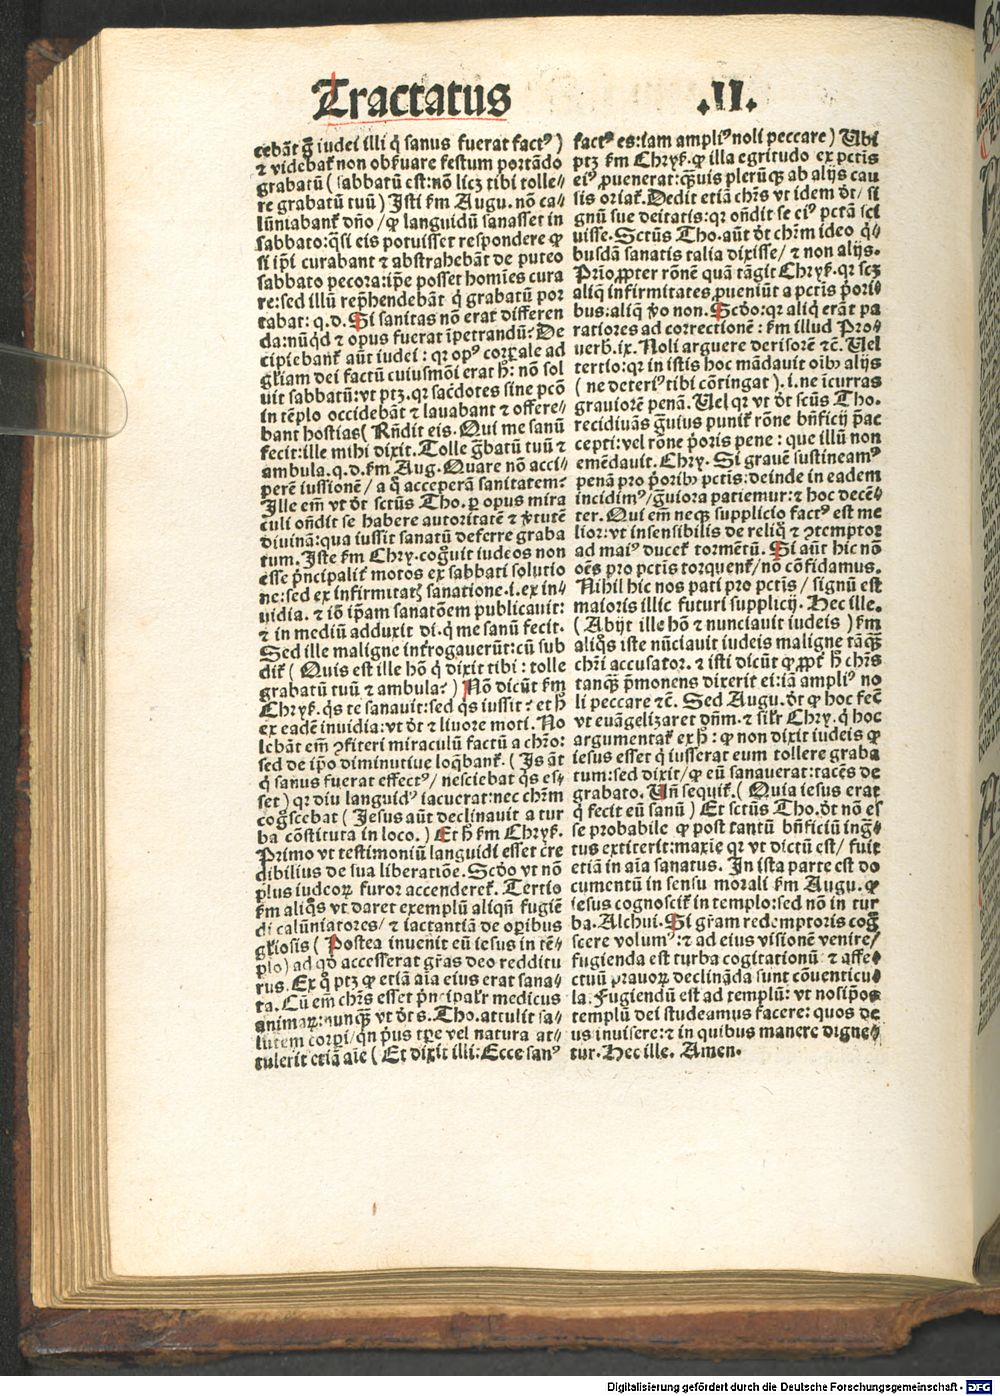 Tractatus .II.
cebāt g̃ iudei illi q̇ sanus fuerat factꝰ)
⁊ videbat̄ non obſuare festum portādo
grabatū (sabbatū est: nō licꝫ tibi tolle⸗
re grabatū tuū) Isti ẜm Augu. nō ca⸗
lūniabant̄ dn̄o / ꝙ languidū sanasset in
sabbato: q̄si eis potuisset respondere ꝙ
si ip̄i curabant ⁊ abstrahebāt de puteo
sabbato pecora: ip̄e posset homīes cura
re: sed illū rep̄hendebāt q̇ grabatū por
tabat: q.d. Si sanitas nō erat differen
da: nūq̇d ⁊ opus fuerat īpetrandū? De
cipiebant̄ aūt iudei: qꝛ opꝰ corꝑale ad
gl̄iam dei factū cuiusmōi erat h̄: nō sol
uit sabbatū: vt ptꝫ. qꝛ sac̄dotes sine pcō
in tēplo occidebāt ⁊ lauabant ⁊ offere⸗
bant hostias (Rn̄dit eis. Qui me sanū
fecit: ille mihi dixit. Tolle g̃batū tuū ⁊
ambula. q.d. ẜm Aug. Quare nō acci⸗
perē iussionē / a q̊ acceperā sanitatem?
Ille em̄ vt dt̄ sctūs Tho. ꝑ opus mira
culi on̄dit se habere autoritatē ⁊ v̇tutē
diuinā: qua iussit sanatū deferre graba
tum. Iste ẜm Chry. cog̊uit iudeos non
esse p̄ncipalit̄ motos ex sabbati solutio
ne: sed ex infirmitatꝭ sanatione. i. ex in⸗
uidia. ⁊ iō ip̄am sanatōem publicauit:
⁊ in mediū adduxit di. q̇ me sanū fecit.
Sed ille maligne inťrogauerūt: cū sub
dit̄ (Quis est ille hō q̇ dixit tibi: tolle
grabatū tuū ⁊ ambula?) Nō dicūt ẜm
Chryſ. q̇s te sanauit: sed q̇s iussit? et h̄
ex eadē inuidia: vt dt̄ ⁊ liuore moti. No
lebāt em̄ ꝯfiteri miraculū factū a chr̄o:
sed de ip̄o diminutiue loq̄bant̄. (Is āt
q̇ sanus fuerat effectꝰ / nesciebat q̇s es⸗
set) qꝛ diu languidꝰ iacuerat: nec chr̄m
cog̊scebat (Iesus aūt declinauit a tur
ba cōstituta in loco.) Et h̄ ẜm Chryſ.
Primo vt testimoniū languidi esset cre
dibilius de sua liberatiōe. Scd̄o vt nō
plus iudeoꝝ furor accenderet̄. Tertio
ẜm aliq̊s vt daret exemplū aliqn̄ fugiē
di calūniatores / ⁊ iactantiā de oꝑibus
gl̄iosis (Postea inuenit eū iesus in tē⸗
plo) ad qd̄ accesserat gr̄as deo redditu
rus. Ex q̊ ptꝫ ꝙ etiā aīa eius erat sana⸗
ta. Cū em̄ chr̄s esset p̄ncipal̄r medicus
animaꝝ: nunq̄ vt dt̄ s. Tho. attulit sa⸗
lutem corꝑi / qn̄ pꝰus tꝑe vel natura at⸗
tulerit etiā aīe (Et dixit illi: Ecce sanꝰ
factꝰ es: iam ampliꝰ noli peccare) Ubi
ptꝫ ẜm Chryſ. ꝙ illa egritudo ex pctīs
eiꝰ ꝓuenerat: q̄uis plerūqꝫ ab alijs cau
sis oriat̄. Dedit etiā chr̄s vt idem dt̄ / si
gnū sue deitatis: qꝛ on̄dit se eiꝰ pctā sci
uisse. Sctūs Tho. aūt dt̄ chr̄m ideo q̇⸗
busdā sanatis talia dixisse / ⁊ non alijs.
Prīo ꝓpter rōnē quā tāgit Chryſ. qꝛ scꝫ
aliq̄ infirmitates ꝓueniūt a pctīs p̄ori⸗
bus: aliq̄ v̇o non. Scd̄o: qꝛ aliq̇ erāt pa
ratiores ad correctionē: ẜm illud Pro⸗
uerb. ix. Noli arguere derisorē ⁊c̄. Uel
tertio: qꝛ in istis hoc mādauit oībꝰ alijs
(ne deteriꝰ tibi cōtingat). i. ne īcurras
grauiorē penā. Uel qꝛ vt dt̄ scūs Tho.
recidiuās g̃uius punit̄ rōne bn̄ficij p̄ac
cepti: vel rōne p̄oris pene: que illū non
emēdauit. Chry. Si grauē sustineamꝰ
penā pro p̄oribꝰ pctīs: deinde in eadem
incidimꝰ / g̃uiora patiemur: ⁊ hoc decē⸗
ter. Qui em̄ neqꝫ supplicio factꝰ est me
lior: vt insensibilis de reliq̊ ⁊ ꝯtemptor
ad maiꝰ ducet̄ tormētū. Si aūt hic nō
oēs pro pctīs torquent̄ / nō cōfidamus.
Nihil hic nos pati pro pctīs / signū est
maioris illic futuri supplicij. Hec ille.
(Abijt ille hō ⁊ nunciauit iudeis) ẜm
aliq̊s iste nūciauit iudeis maligne tāq̄
chr̄i accusator. ⁊ isti dicūt ꝙ ꝓpt̄ h̄ chr̄s
tanq̄ p̄monens dixerit ei: iā ampliꝰ no
li peccare ⁊c̄. Sed Augu. dt̄ ꝙ hoc fec̄
vt euāgelizaret dn̄m. ⁊ sil̄r Chry. q̇ hoc
argumentat̄ ex h̄: ꝙ non dixit iudeis ꝙ
iesus esset q̇ iusserat eum tollere graba
tum: sed dixit / ꝙ eū sanauerat: tacēs de
grabato. Un̄ sequit̄. (Quia iesus erat
q̇ fecit eū sanū) Et sctūs Tho. dt̄ nō es
se probabile ꝙ post tantū bn̄ficiū ing̃⸗
tus extiterit: maxīe qꝛ vt dictū est / fuit
etiā in aīa sanatus. In ista parte est do
cumentū in sensu morali ẜm Augu. ꝙ
iesus cognoscit̄ in templo: sed nō in tur
ba. Alchui. Si gr̄am redemptoris cog̊
scere volumꝰ: ⁊ ad eius visionē venire /
fugienda est turba cogitationū ⁊ affe⸗
ctuū prauoꝝ declināda sunt cōuenticu⸗
la. Fugiendū est ad templū: vt nosip̄os
templū dei studeamus facere: quos de
us inuisere: ⁊ in quibus manere digne⸗
tur. Hec ille. Amen.
Digitalisierung gefördert durch die Deutsche Forschungsgemeinschaft - DFG